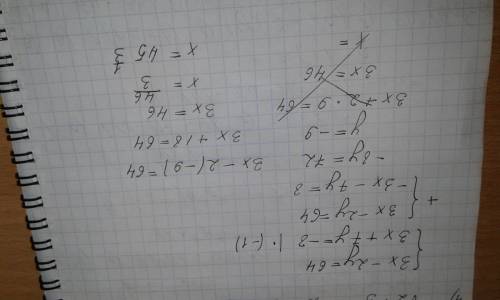 { 3x - 2y = 64
{ 3x + 7y = -8 | · (-1)
+ { 3x - 2y = 64
{ -3x - 7y = 8
-8y = 72
y = -9
3x + 2 · 9 = 64
3x = 46
x =
3x - 2(-9) = 64
3x + 18 = 64
3x = 46
x = 46/3
x = 45 1/3